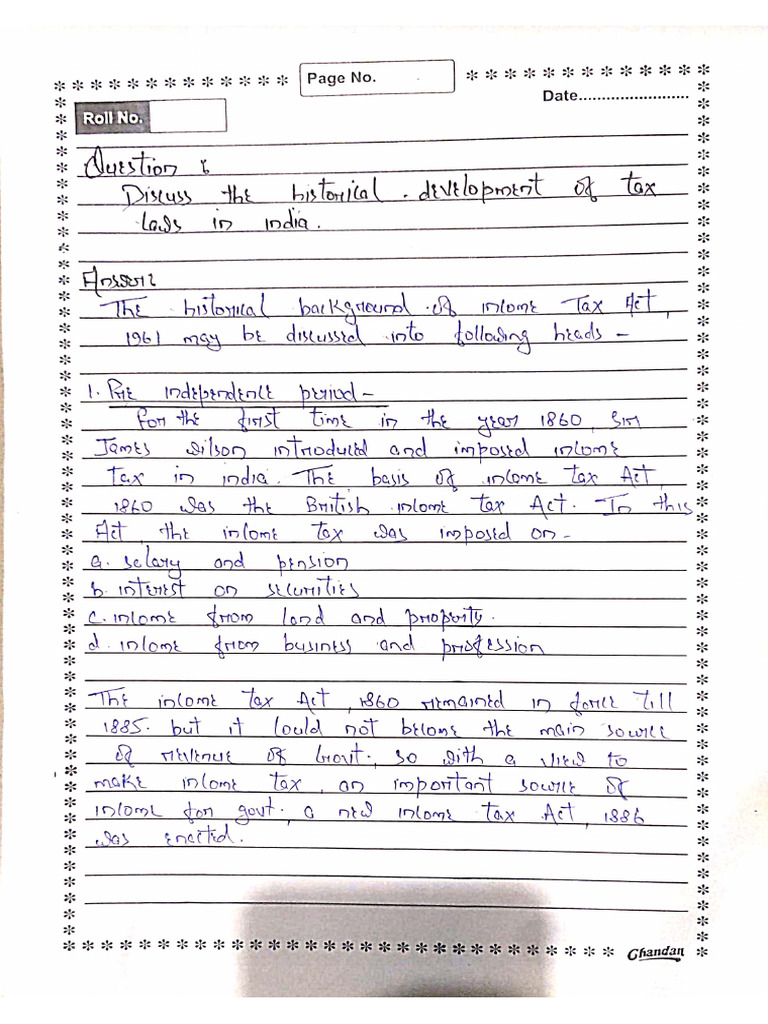 Page No.
Date........................
Roll No.
Question :
Discuss the historical development of tax
laws in india.
Answer :
The historical background of income Tax Act,
1961 may be discussed into following heads -
1. Pre independence period -
For the first time in the year 1860, Sir
James wilson introduced and imposed income
tax in india. The basis of income tax Act,
1860 was the British income tax Act. In this
Act, the income tax was imposed on -
a. selary and pension
b. interest on securities
c. income from land and property.
d. income from business and profession
The income tax Act, 1860 remained in force till
1885. but it could not become the main source
of revenue of Govt., so with a view to
make income tax, an important source of
income for govt. a new income tax Act, 1886
was enacted.
Chandan